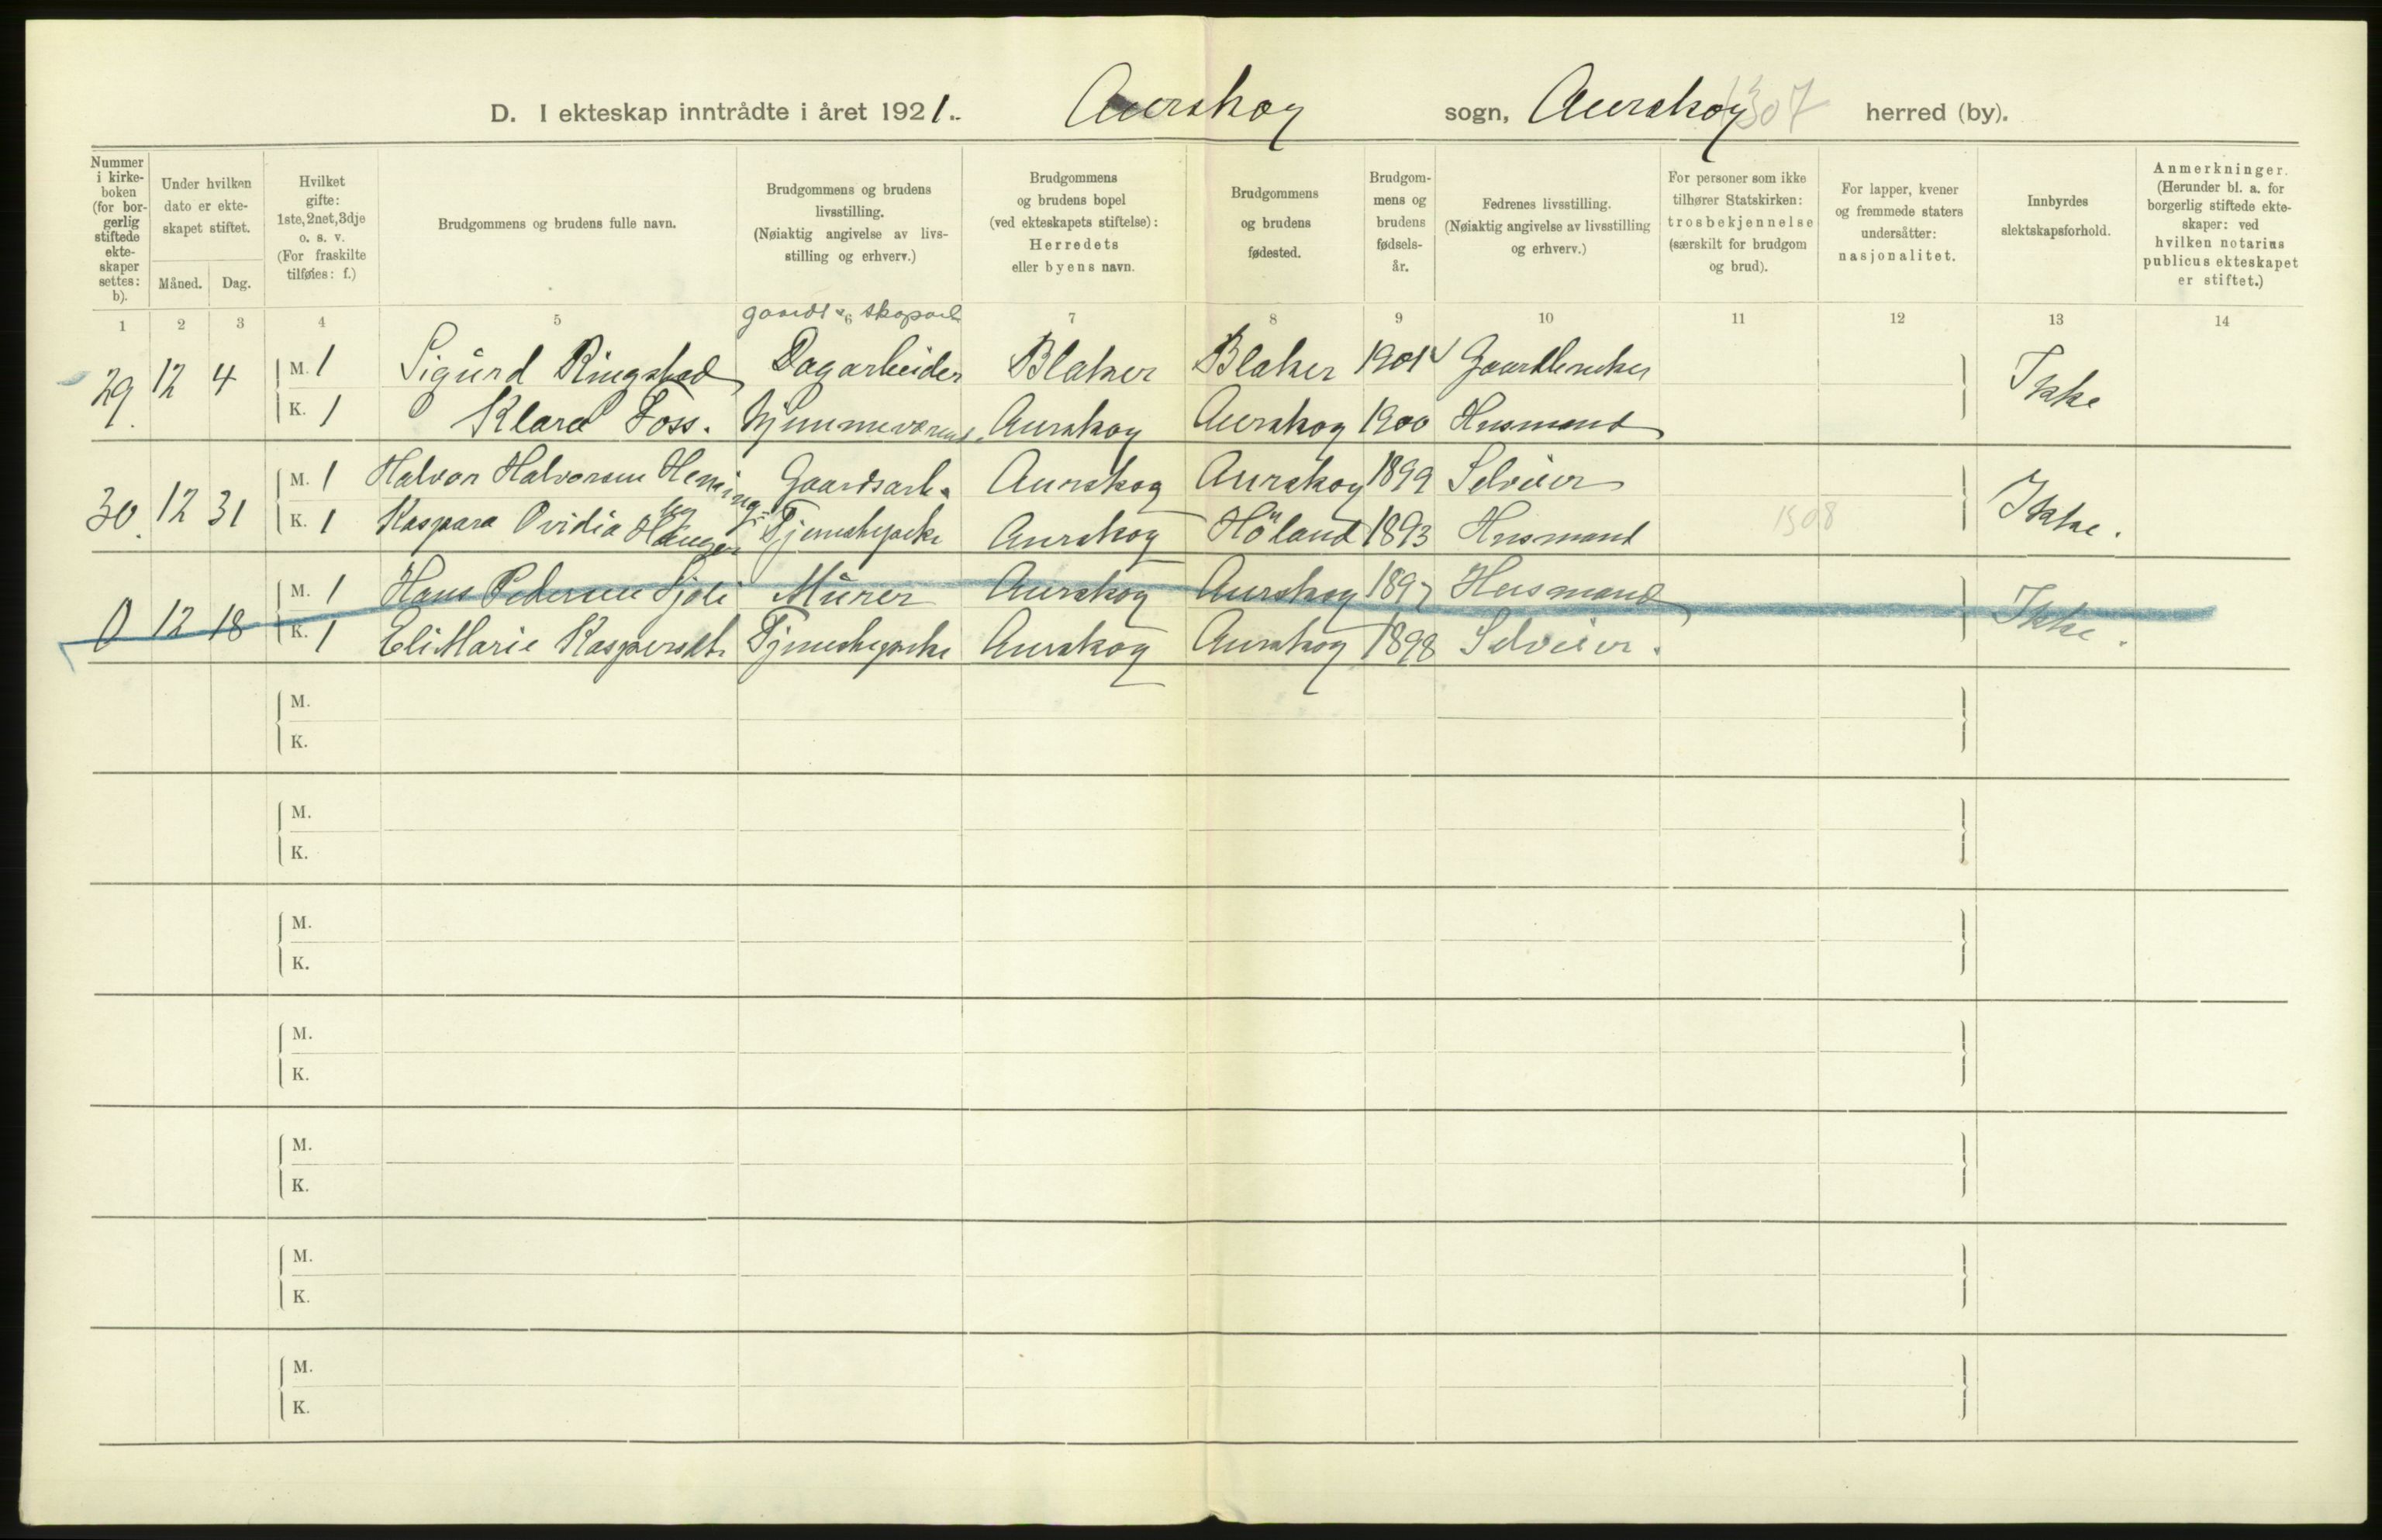 D. I ekteskap inntrådte i året 1921. Aurskog sogn, Aurskog 1307 herred (by).
Nummer i kirkeboken (for borgerlig stiftede ekteskaper settes: b).
Under hvilken dato er ekteskapet stiftet.
Måned. Dag.
Hvilket gifte: 1ste, 2net, 3dje o. s. v. (For fraskilte tilføies: f.)
Brudgommens og brudens fulle navn.
Brudgommens og brudens livsstilling. (Nøiaktig angivelse av livsstilling og erhverv.)
Brudgommens og brudens bopel (ved ekteskapets stiftelse): Herredets eller byens navn.
Brudgommens og brudens fødested.
Brudgommens og brudens fødselsår.
Fedrenes livsstilling. (Nøiaktig angivelse av livsstilling og erhverv.)
For personer som ikke tilhører Statskirken: trosbekjennelse (særskilt for brudgom og brud).
For lapper, kvener og fremmede staters undersåtter: nasjonalitet.
Innbyrdes slektskapsforhold.
Anmerkninger. (Herunder bl. a. for borgerlig stiftede ekteskaper: ved hvilken notarius publicus ekteskapet er stiftet.)
1 2 3 4 5 6 7 8 9 10 11 12 13 14
gaards & skogarb
29. 12 4 M. 1 Sigurd Ringstad Dagarbeider Blaker Blaker 1901 Gaardbruker Ikke
K. 1 Klara Foss. Hjemmeværend. Aurskog Aurskog 1900 Husmand
30. 12 31 M. 1 Halvor Halvorsen Heming Gaardsarb. Aurskog Aurskog 1899 Selveier Ikke.
K. 1 Kaspara Ovidia Tjenestepike Aurskog Höland 1893 Husmand 1508
0 12 18 M. 1 Hans Pedersen Murer Aurskog Aurskog 1897 Husmand Ikke.
K. 1 Eli Marie Kaspersdt. Tjenestepike Aurskog Aurskog 1898 Selveier.
M.
K.
M.
K.
M.
K.
M.
K.
M.
K.
M.
K.
M.
K.